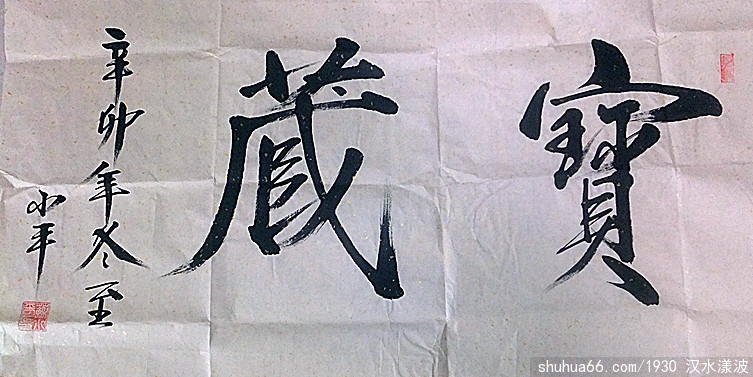 寶藏
辛卯年冬至
小平
shuhua66.com/1930 汉水漾波